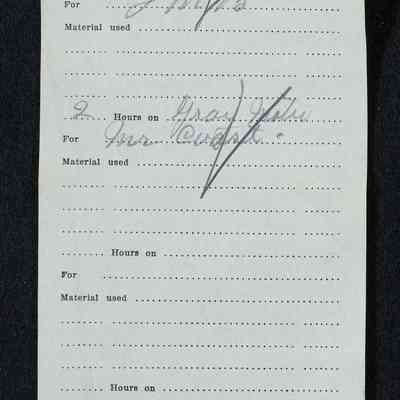 For
Material used
2 Hours on Gray
For Mr
Material used
Hours on
For
Material used
Hours on